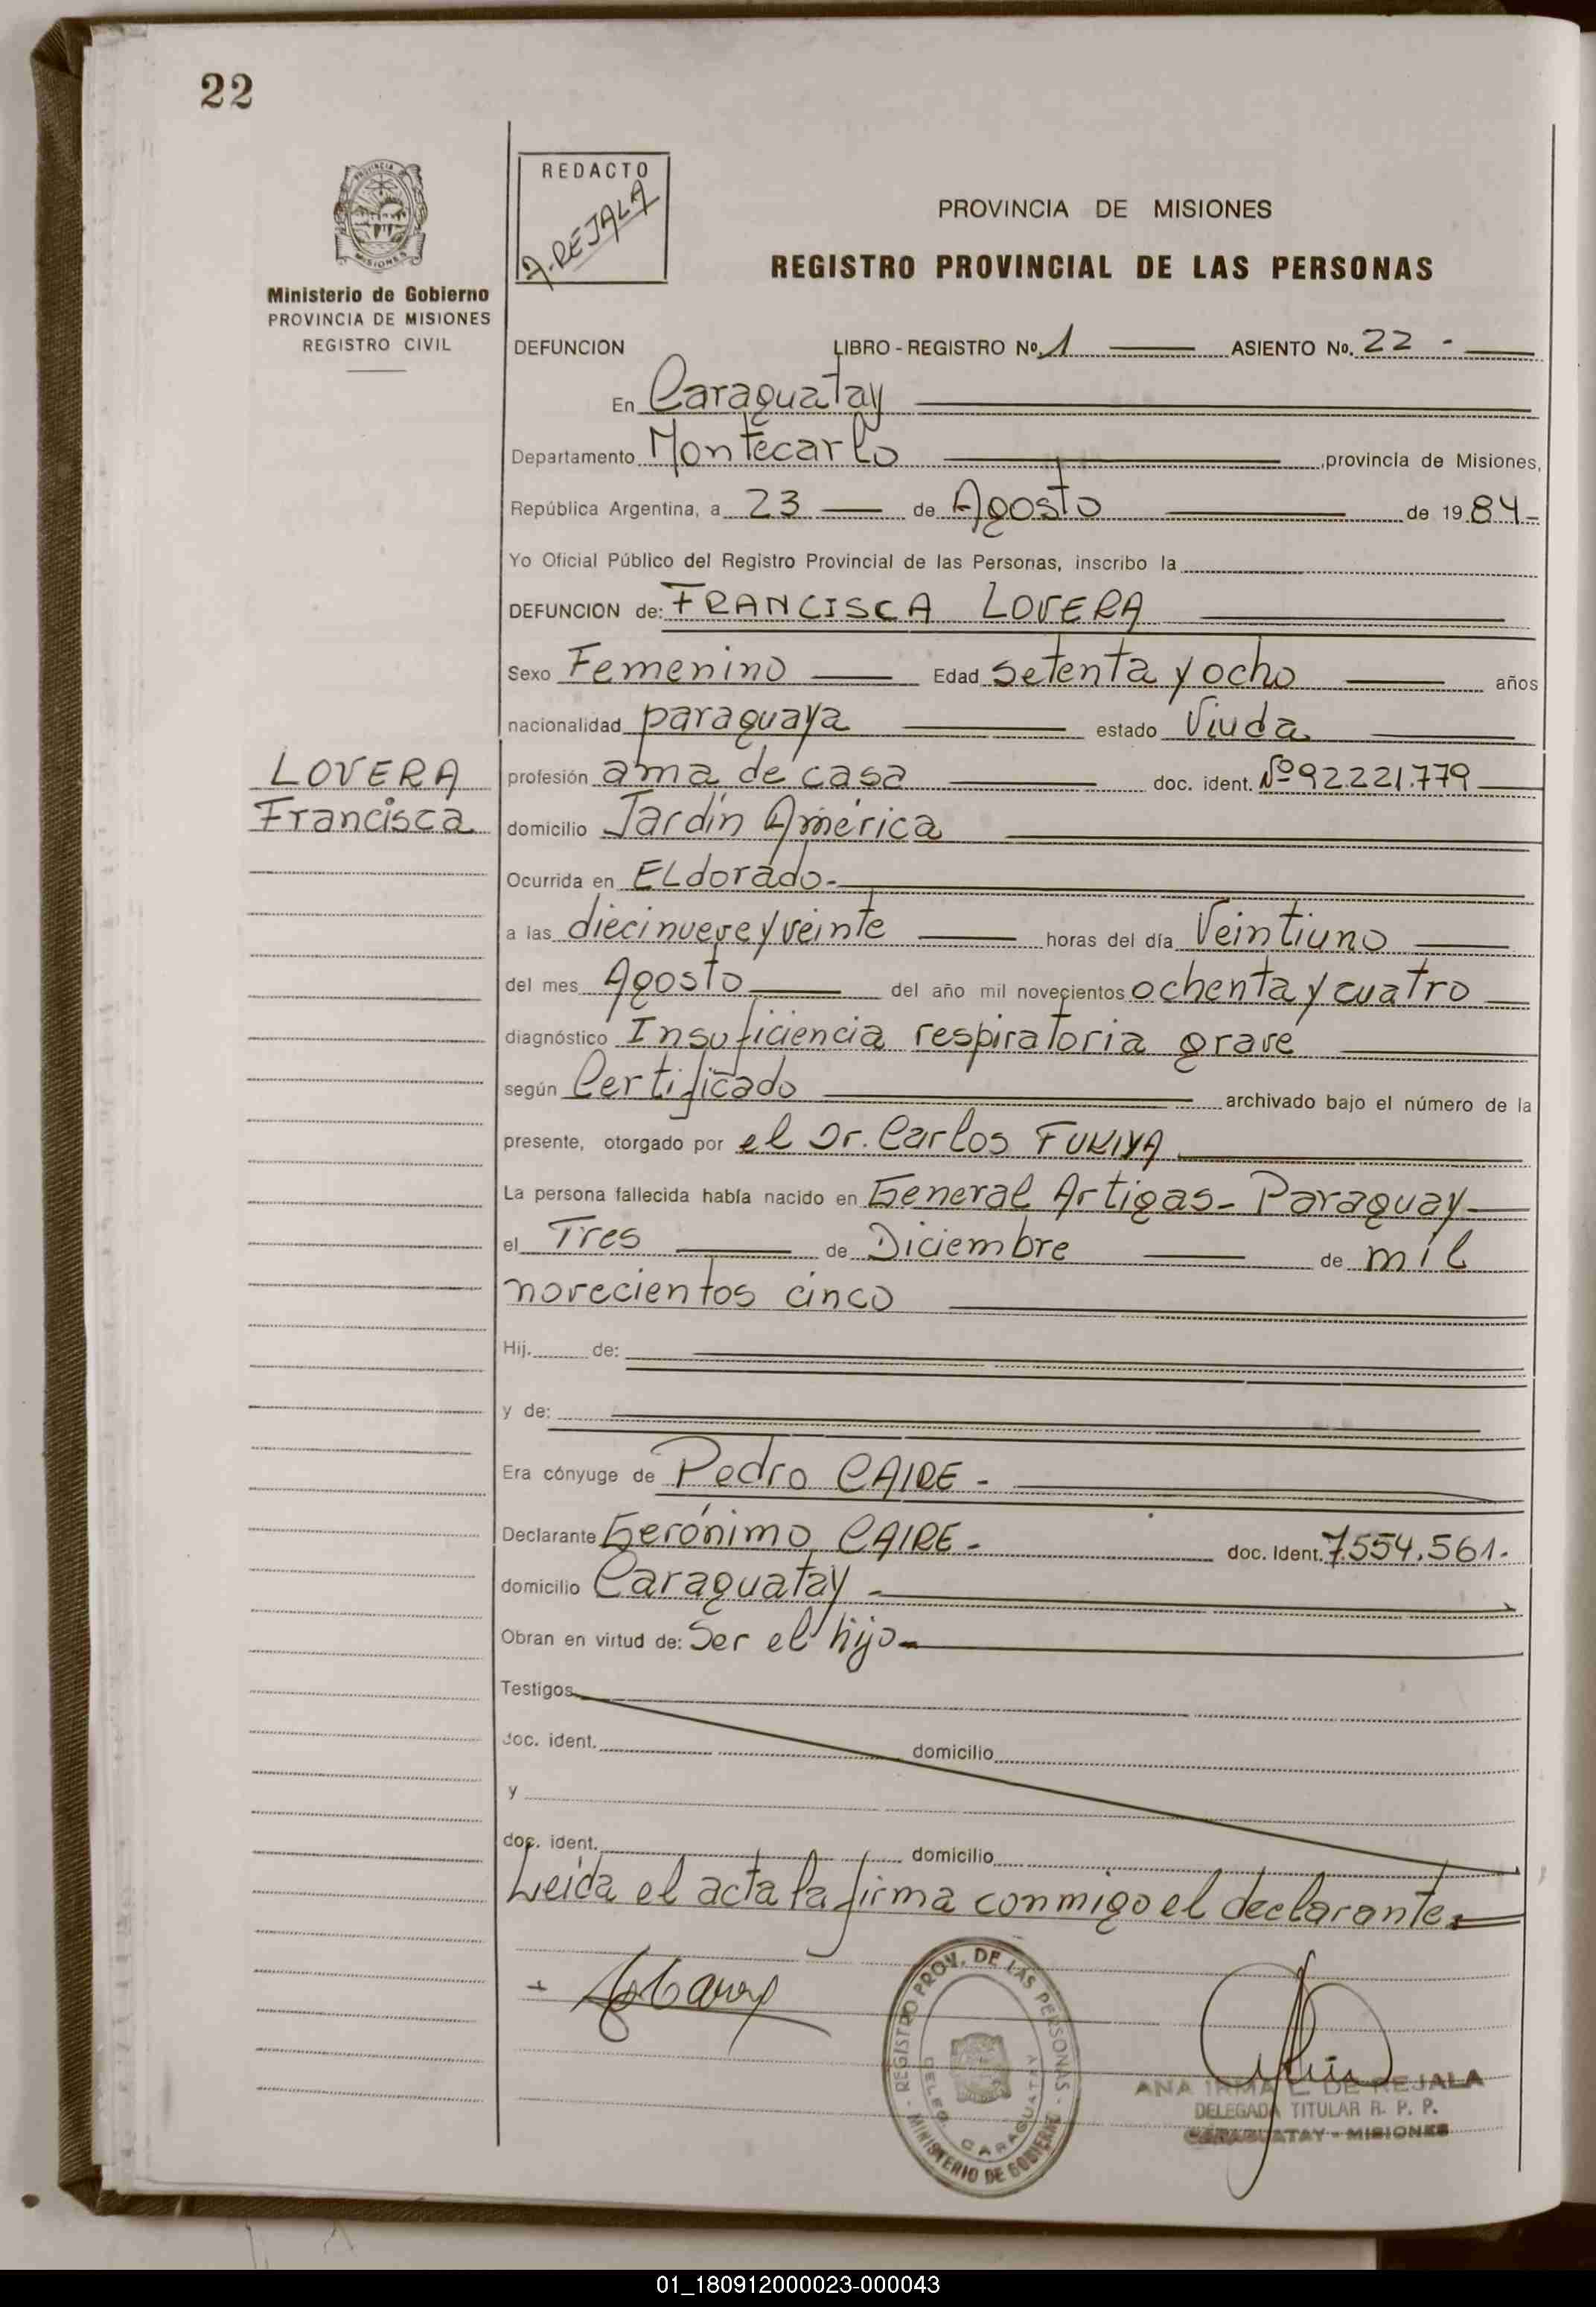 22
PROVINCIA
MISIONES
Ministerio de Gobierno
PROVINCIA DE MISIONES
REGISTRO CIVIL
REDACTO
A. REJALA
PROVINCIA DE MISIONES
REGISTRO PROVINCIAL DE LAS PERSONAS
DEFUNCION LIBRO - REGISTRO No. 1 ASIENTO No. 22 -
En Caraguatay
Departamento Montecarlo , provincia de Misiones,
República Argentina, a 23 de Agosto de 19 84-
Yo Oficial Público del Registro Provincial de las Personas, inscribo la
DEFUNCION de: FRANCISCA LOVERA
Sexo Femenino Edad setenta y ocho años
nacionalidad paraguaya estado Viuda
LOVERA
Francisca
profesión ama de casa doc. ident. Nº 92.221.779
domicilio Jardín América
Ocurrida en ELdorado.-
a las diecinueve y veinte horas del día Veintiuno
del mes Agosto del año mil novecientos ochenta y cuatro
diagnóstico Insuficiencia respiratoria grave
según Certificado archivado bajo el número de la
presente, otorgado por el Dr. Carlos FUKIYA
La persona fallecida había nacido en General Artigas- Paraguay
el Tres de Diciembre de mil
novecientos cinco
Hij. de:
y de:
Era cónyuge de Pedro CAIRE -
Declarante Gerónimo CAIRE - doc. Ident. 7.554.561.
domicilio Caraguatay -
Obran en virtud de: Ser el hijo-
Testigos
doc. ident. domicilio
y
doc. ident. domicilio
Leída el acta la firma conmigo el declarante.=
REGISTRO PROV. DE LAS PERSONAS - MINISTERIO DE GOBIERNO -
DELEG. CARAGUATAY
ANA IRMA L. DE REJALA
DELEGADA TITULAR R. P. P.
CARAGUATAY - MISIONES
01_180912000023-000043